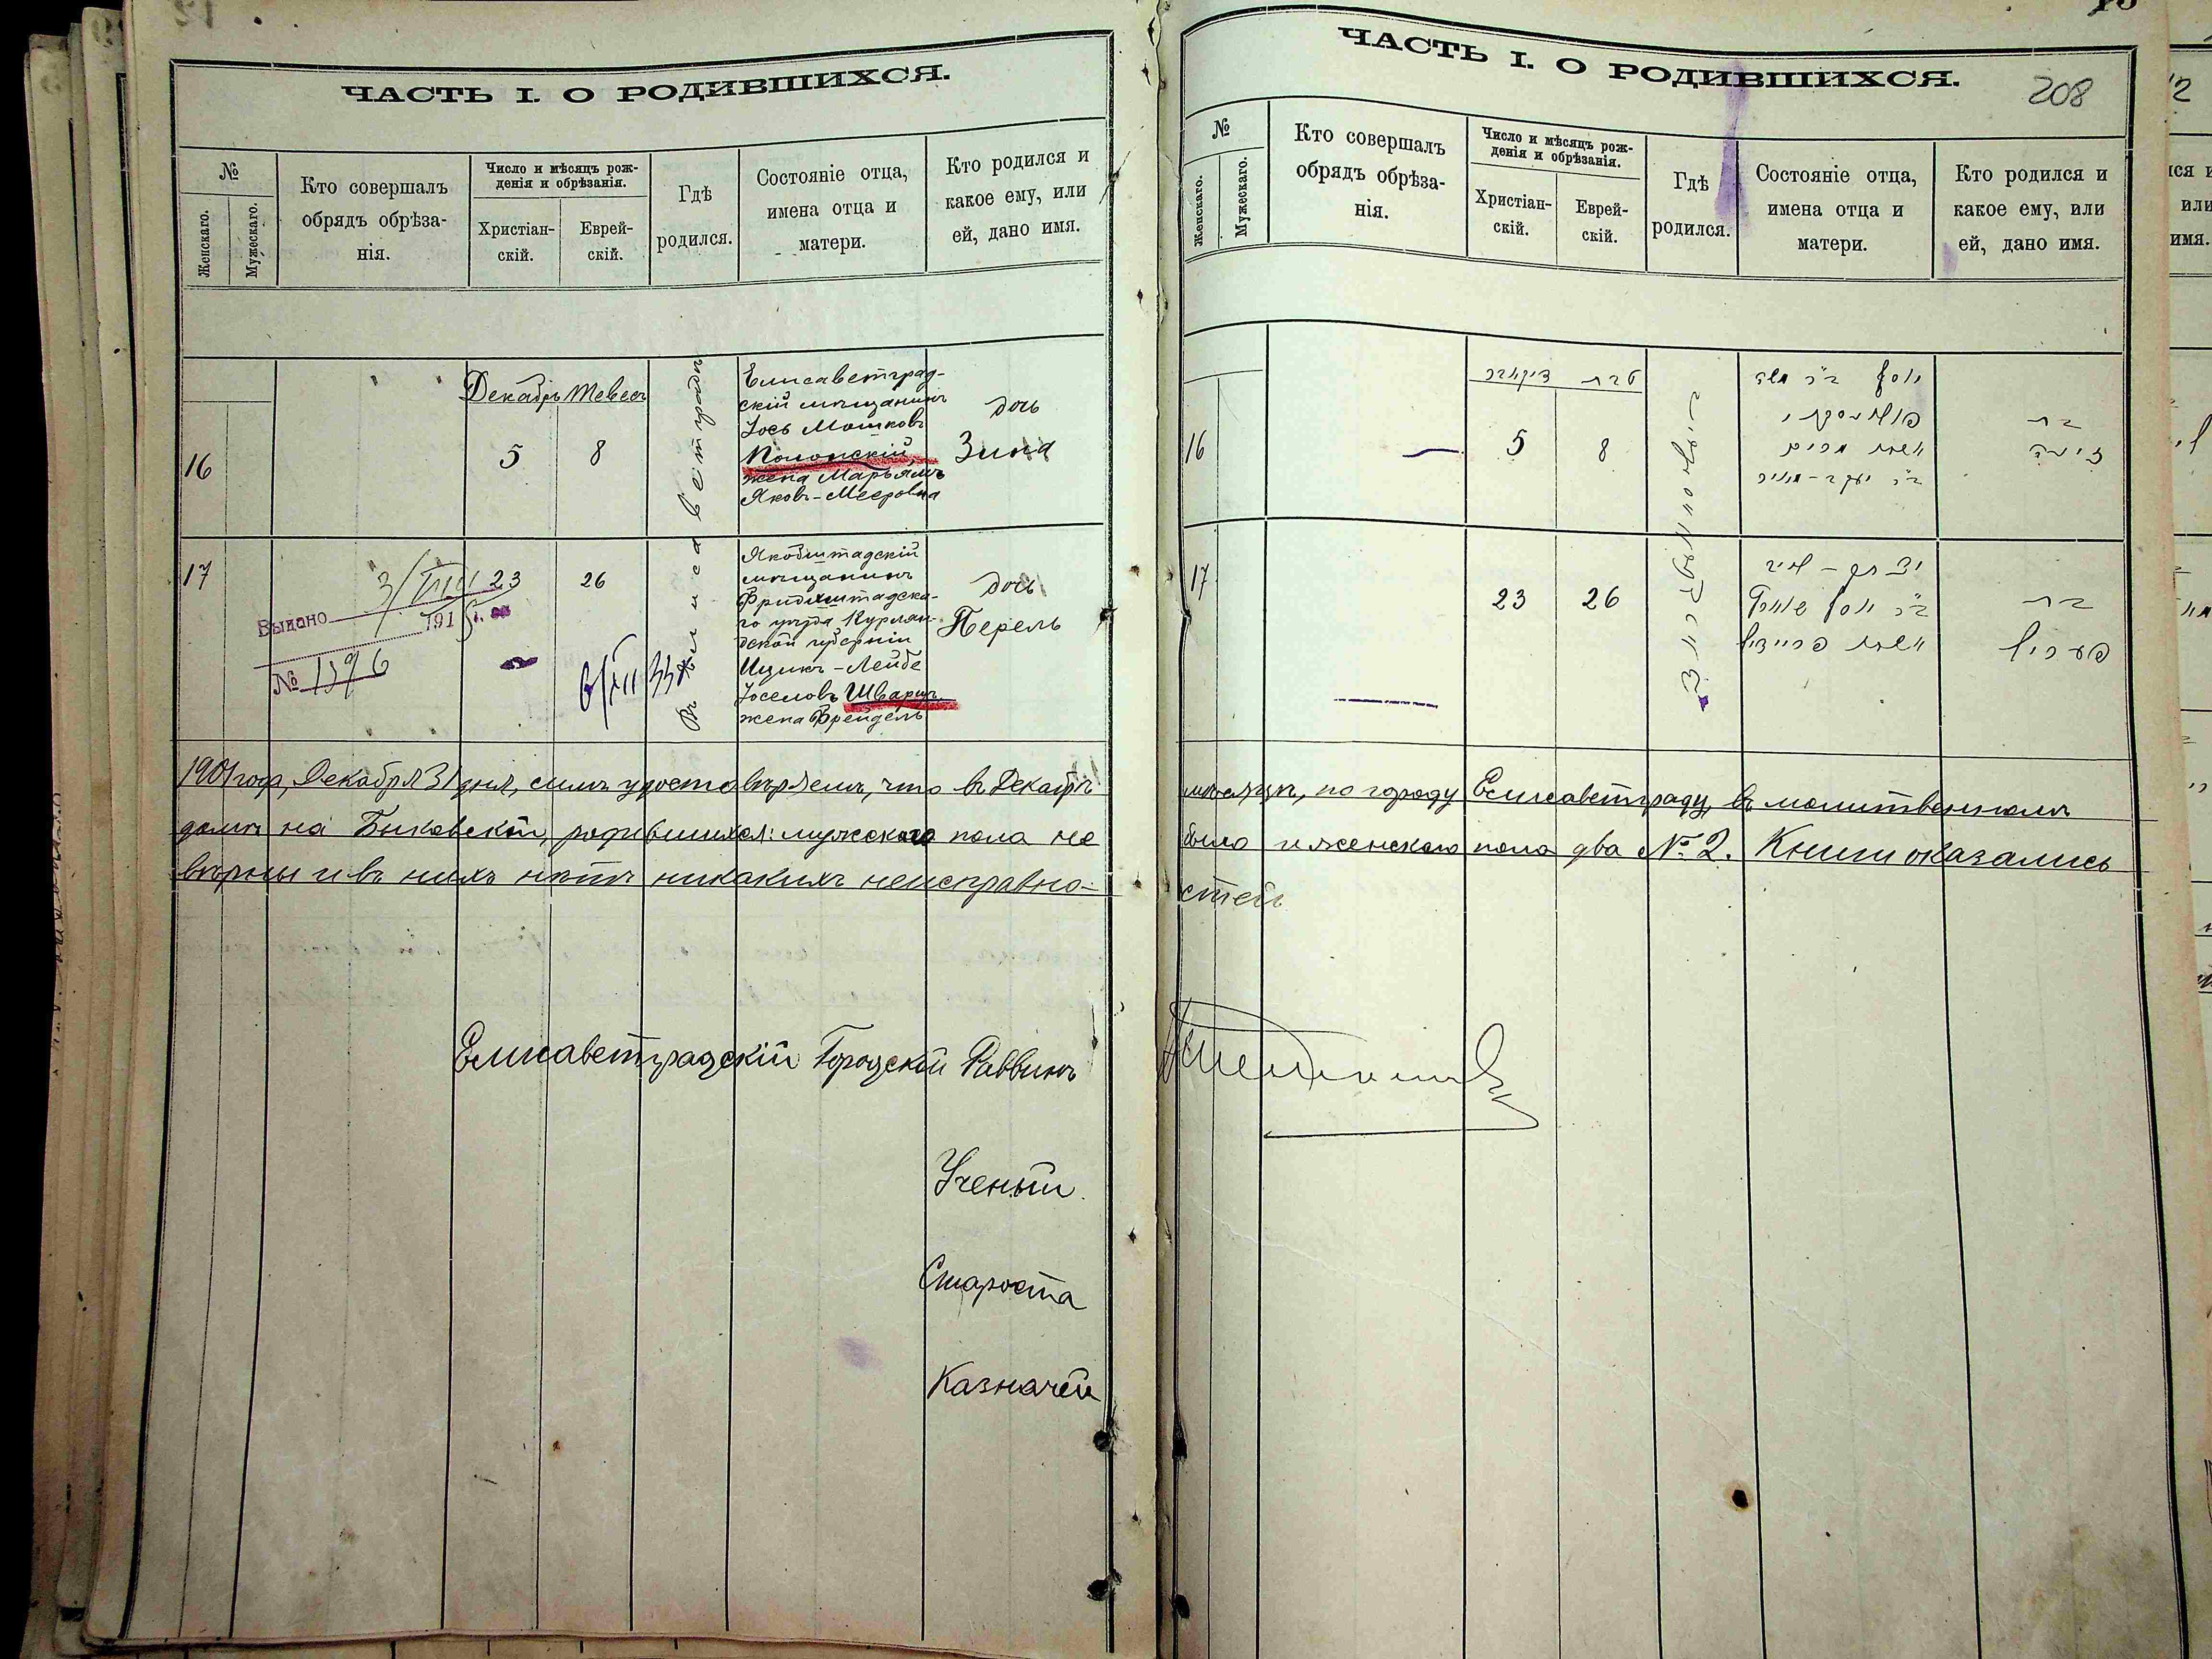 ЧАСТЬ I. О РОДИВШИХСЯ.
№
Женскаго.
Мужескаго.
Кто совершалъ
обрядъ обрѣза-
нія.
Число и мѣсяцъ рож-
денія и обрѣзанія.
Христіан-
скій.
Еврей-
скій.
Гдѣ
родился.
Состояніе отца,
имена отца и
матери.
Кто родился и
какое ему, или
ей, дано имя.
Декабрь Тевесъ
16
5
8
Въ Елисаветградѣ
Елисаветград-
скій мѣщанинъ
Іось Мошковъ
Полонскій,
жена Марьямъ
Яковъ-Мееровна
дочь
Зина
17
Выдано 3/VIII 1915 г.
№ 1396
23
26
Якобштадскій
мѣщанинъ
Фридихштадска-
го уѣзда Курлян-
дской губерніи
Ицикъ-Лейбе
Іоселовъ Шварцъ
жена Фрейдель
дочь
Перель
1901 года, Декабря 31 дня, симъ удостовѣряемъ, что въ Декабрѣ
домѣ на Быковской, родившихся: мужескаго пола не
вѣрны и въ нихъ нѣтъ никакихъ неисправно-
Елисаветградскій Городской Раввинъ
Ученый
Староста
Казначей
ЧАСТЬ I. О РОДИВШИХСЯ.
208
№
Женскаго.
Мужескаго.
Кто совершалъ
обрядъ обрѣза-
нія.
Число и мѣсяцъ рож-
денія и обрѣзанія.
Христіан-
скій.
Еврей-
скій.
Гдѣ
родился.
Состояніе отца,
имена отца и
матери.
Кто родился и
какое ему, или
ей, дано имя.
טבת
16
5
8
יוסף בר משה
בת
זינה
17
23
26
בת
פעריל
мѣсяцѣ, по городу Елисаветграду, въ молитвенномъ
было и женскаго пола два № 2. Книги оказались
стей